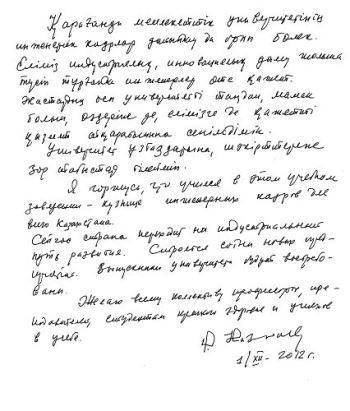 Қарағанды мемлекеттік университетінің
инженерлік кадрлар дайындауда орны бөлек.
Еліміз индустриялық, инновациялық даму жолына
түсіп тұрғанда инженерлер өте қажет.
Жастардың осы университетті таңдап, маман
болып, өздеріне де, елімізге де қажетті
қызмет атқаратынына сенімдімін.
Университет ұстаздарына, шәкірттеріне
зор табыстар тілеймін.
Я горжусь, что учился в этом учебном
заведении – кузнице инженерных кадров для
всего Казахстана.
Сейчас страна переходит на индустриальный
путь развития. Строятся сотни новых
Выпускники университета будут востребо-
ваны.
Желаю всему коллективу профессоров, пре-
подавателей, студентам крепкого здоровья и успехов
в учебе.
1/XII- 2012г.